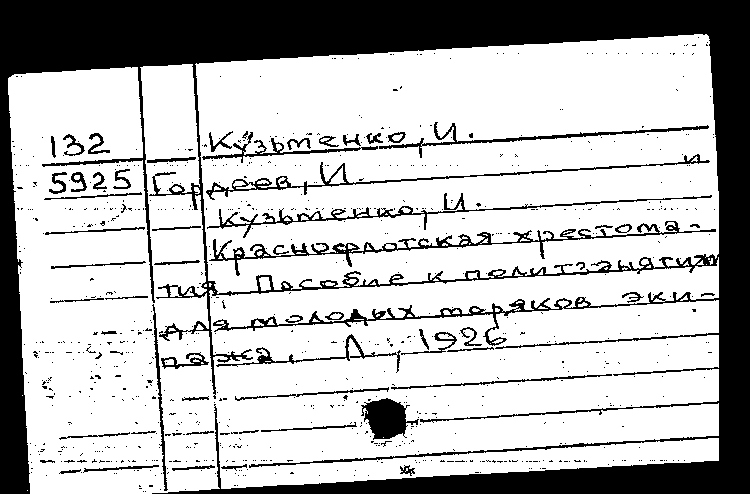 132 Кузьменко, И.
5925 Гордеев, И. и
Кузьменко, И.
Краснофлотская хрестома-
тия. Пособие к политзанятиям
для молодых моряков эки-
пажа. Л., 1926